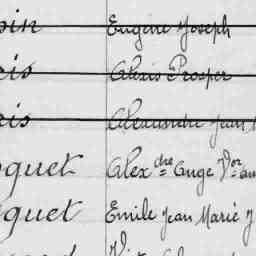 pin Eugène Joseph
cis Alexis Prosper
cis Alexandre Jean
oquet Alex dre Ange Vor
quet Emile Jean Marie J